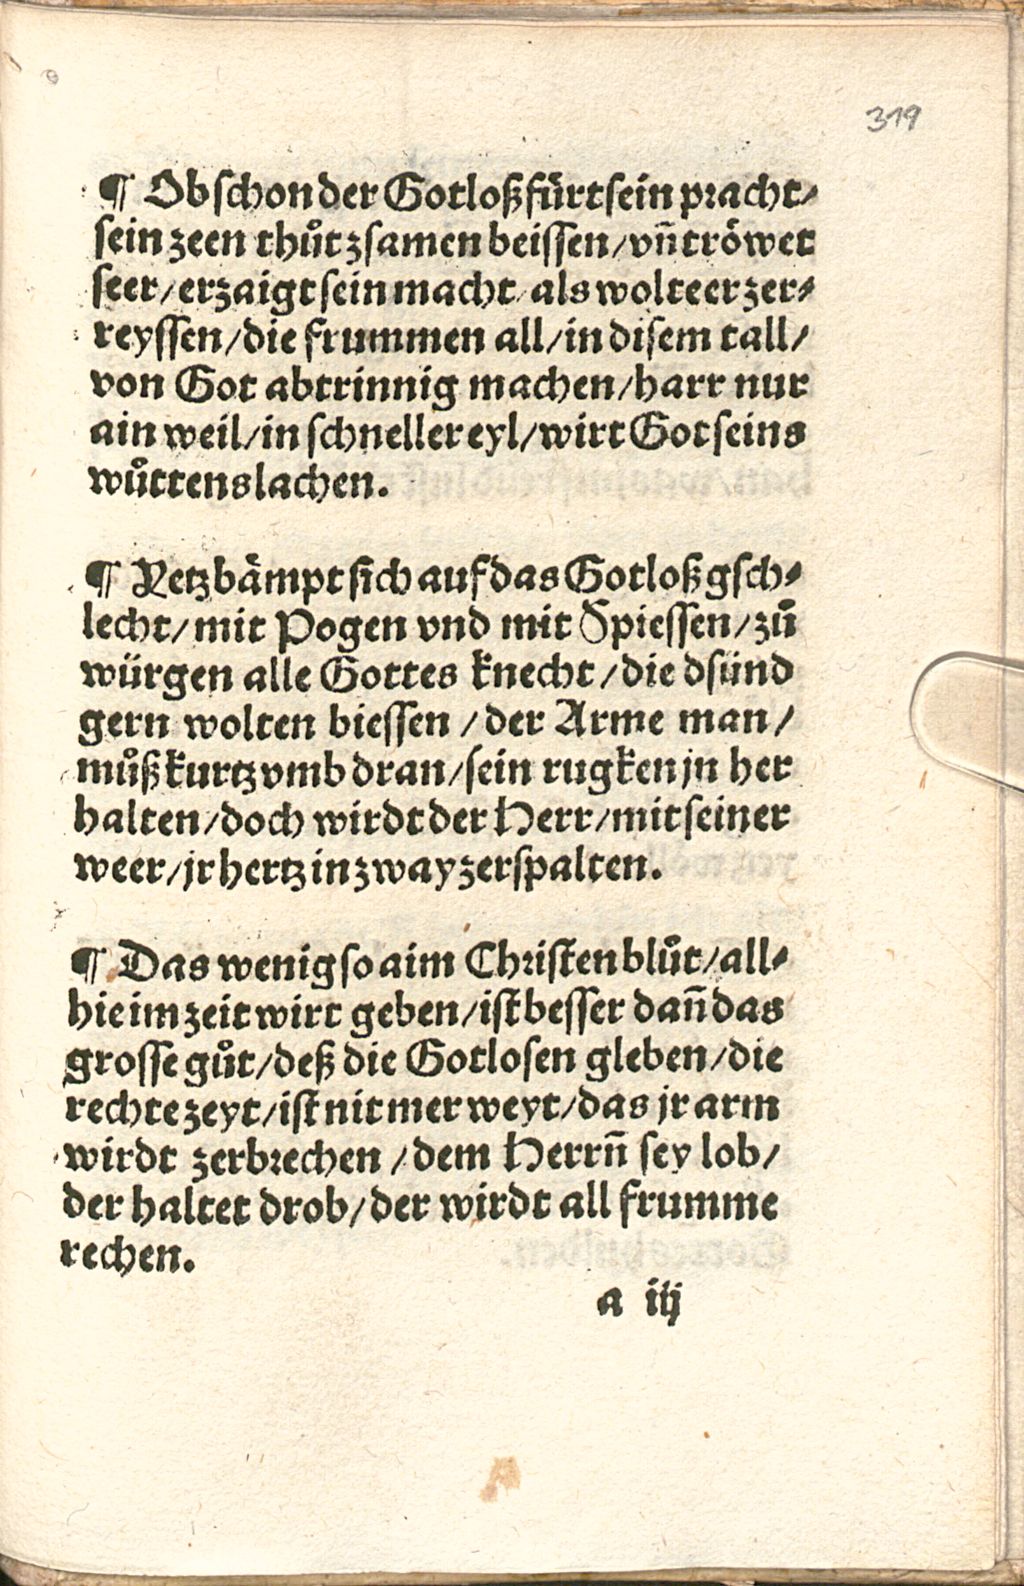 319
¶ Ob schon der Gotloß fürt sein pracht⸗
sein zeen thůt zsamen beissen/vñ tröwet
seer/erzaigt sein macht/als wolte er zer⸗
reyssen/die frummen all/in disem tall/
von Got abtrinnig machen/harr nur
ain weil/in schneller eyl/wirt Got seins
wůttens lachen.
¶ Yetz bämpt sich auf das Gotloß gsch⸗
lecht/mit Pogen vnd mit Spiessen/zů
würgen alle Gottes knecht/die dsünd
gern wolten biessen/der Arme man/
můß kurtz vmb dran/sein rugken jn her
halten/doch wirdt der Herr/mit seiner
weer/jr hertz in zway zerspalten.
¶ Das wenig so aim Christen blůt/all⸗
hie im zeit wirt geben/ist besser dañ das
grosse gůt/deß die Gotlosen gleben/die
rechte zeyt/ist nit mer weyt/das jr arm
wirdt zerbrechen/dem Herrñ sey lob/
der haltet drob/der wirdt all frumme
rechen.
a iij